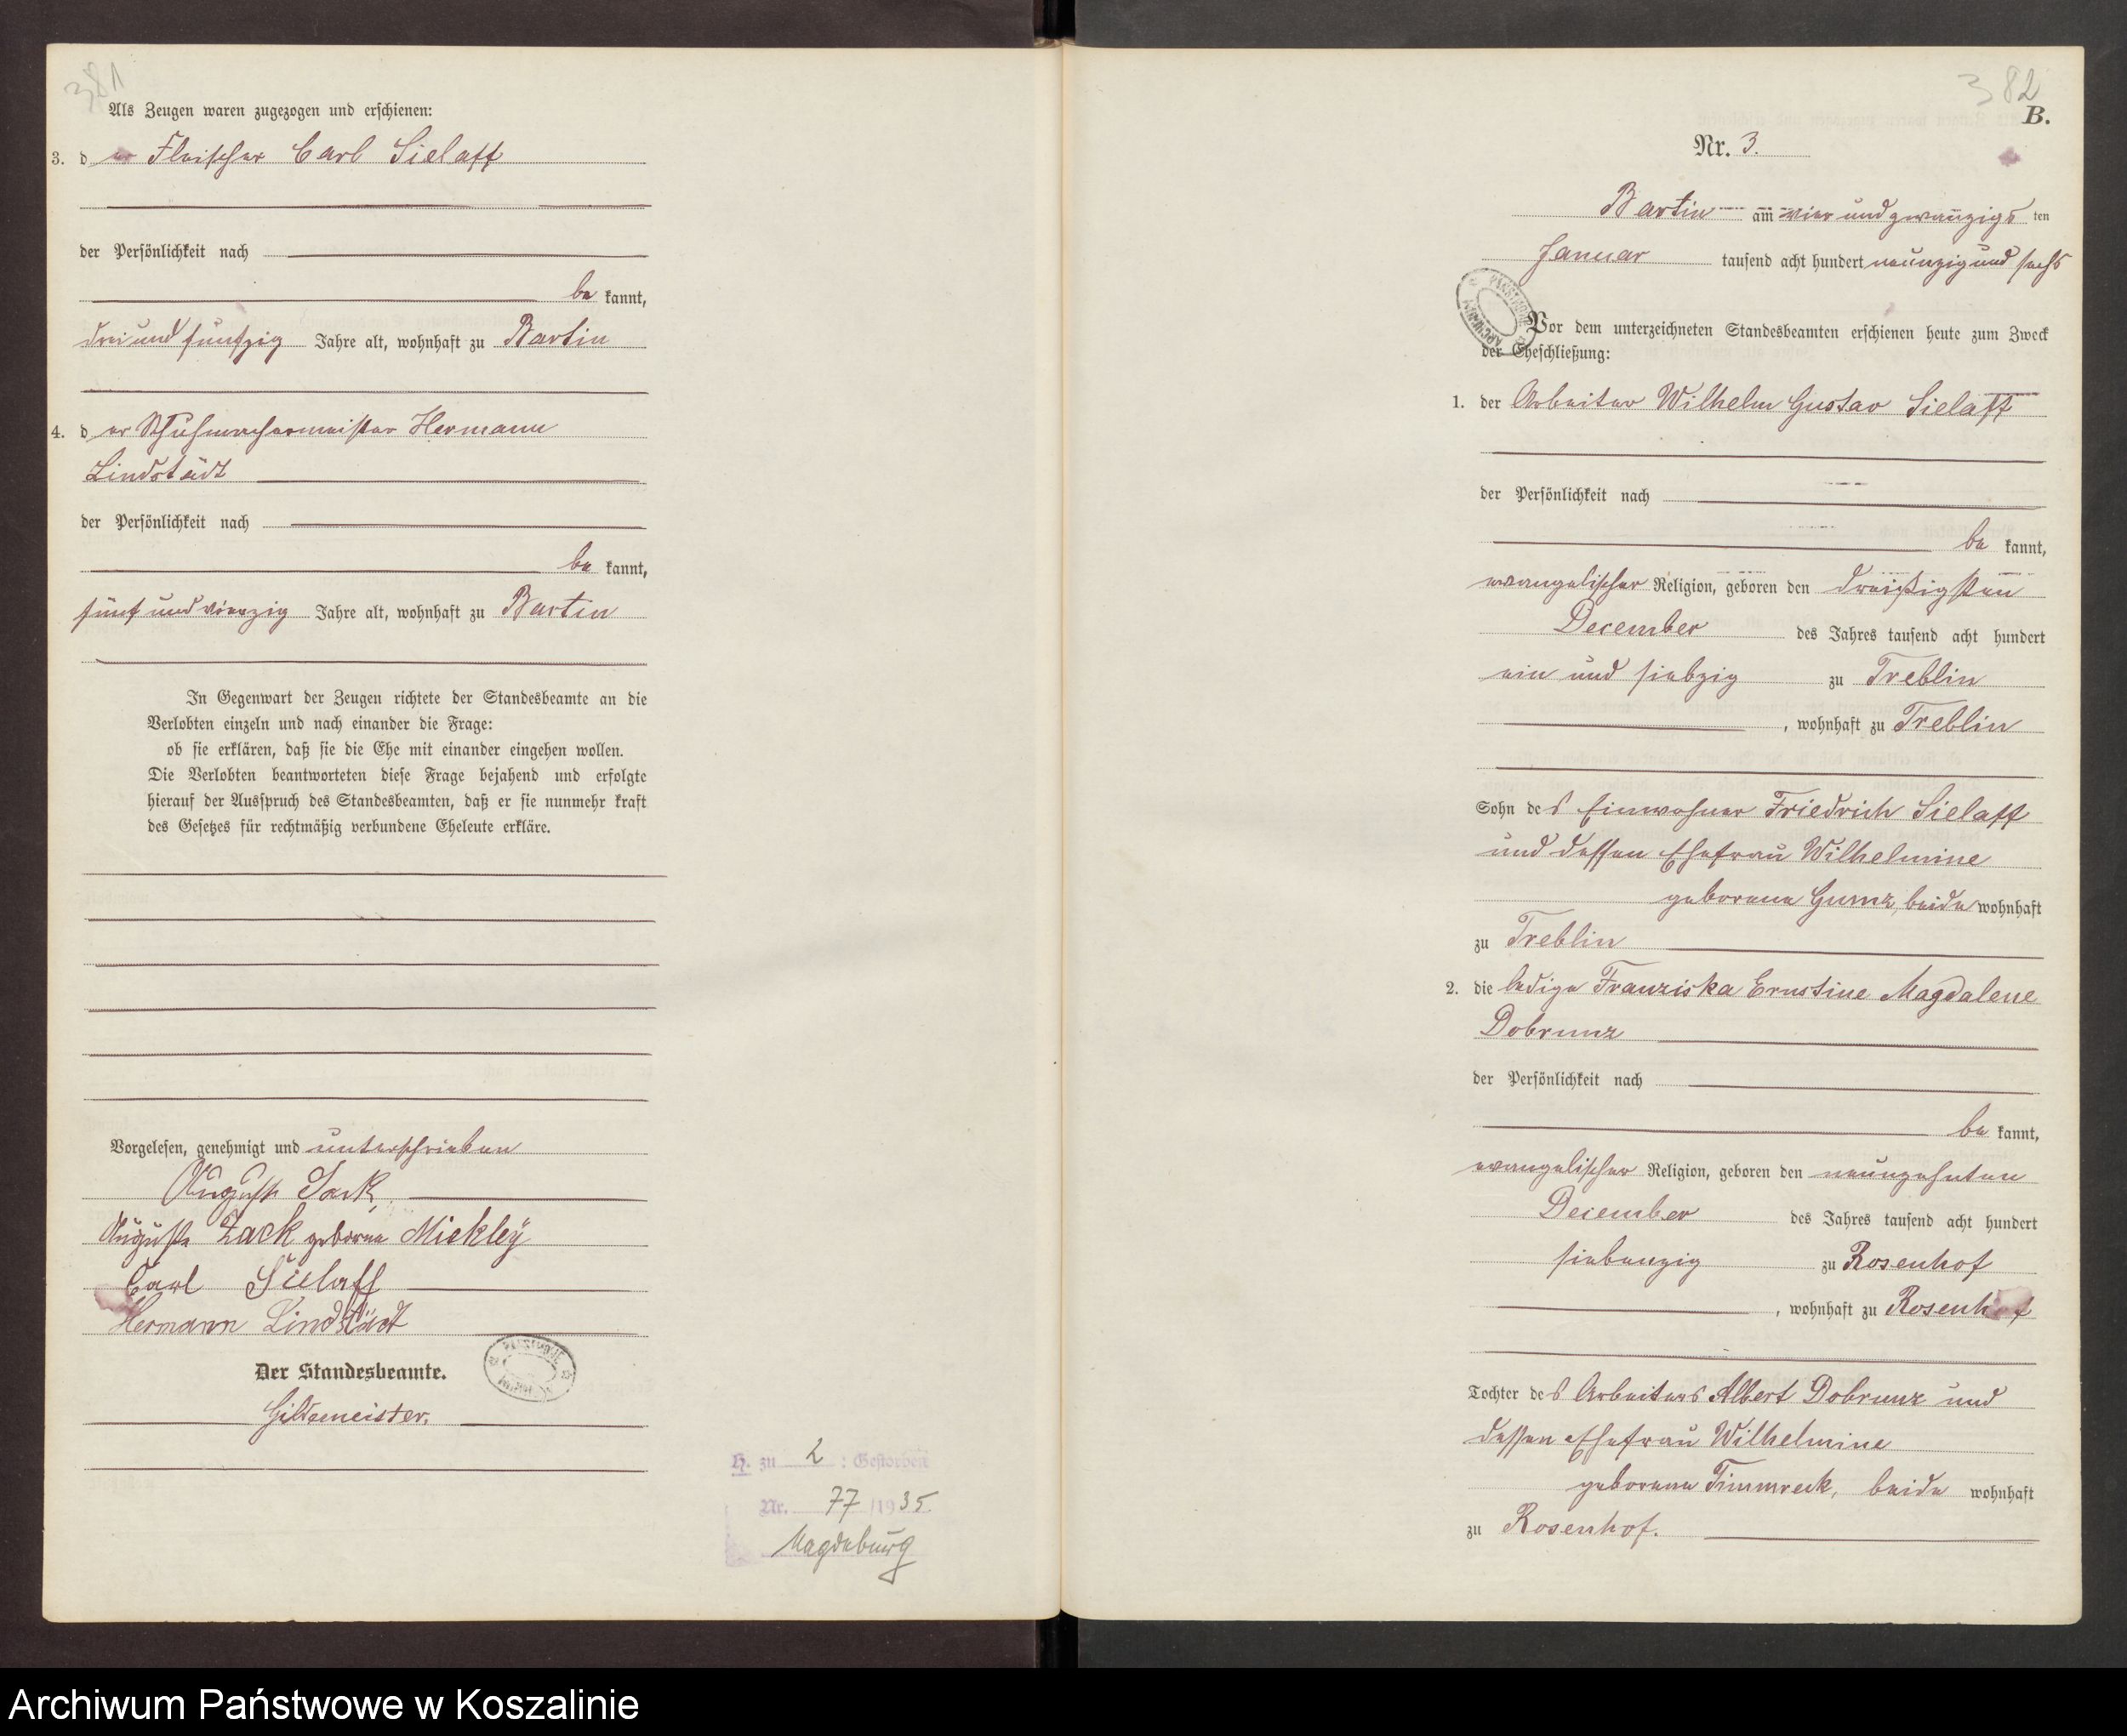 381
Als Zeugen waren zugezogen und erschienen:
3. d er Fleischer Carl Sielaff
der Persönlichkeit nach
be kannt,
drei und fünfzig Jahre alt, wohnhaft zu Bartin
4. d er Schuhmachermeister Hermann
Lindstädt
der Persönlichkeit nach
be kannt,
fünf und vierzig Jahre alt, wohnhaft zu Bartin
In Gegenwart der Zeugen richtete der Standesbeamte an die
Verlobten einzeln und nach einander die Frage:
ob sie erklären, daß sie die Ehe mit einander eingehen wollen.
Die Verlobten beantworteten diese Frage bejahend und erfolgte
hierauf der Ausspruch des Standesbeamten, daß er sie nunmehr kraft
des Gesetzes für rechtmäßig verbundene Eheleute erkläre.
Vorgelesen, genehmigt und unterschrieben
August
Auguste Zack geborne Mickley
Carl Sielaff
Hermann Lindstädt
Der Standesbeamte.
Gildemeister.
H. zu 2 : Gestorben
Nr. 77 /1935.
Magdeburg
382
B.
Nr. 3.
Bartin am vier und zwanzigs ten
Januar tausend acht hundert neunzig und sechs
Vor dem unterzeichneten Standesbeamten erschienen heute zum Zweck
der Eheschließung:
1. der Arbeiter Wilhelm Gustav Sielaff
der Persönlichkeit nach
be kannt,
evangelischer Religion, geboren den dreißigsten
December des Jahres tausend acht hundert
ein und siebzig zu Treblin
, wohnhaft zu Treblin
Sohn des Einwohner Friedrich Sielaff
und dessen Ehefrau Wilhelmine
geborene Gumz, beide wohnhaft
zu Treblin
2. die ledige Franziska Ernstine Magdalene
Dobrunz
der Persönlichkeit nach
be kannt,
evangelischer Religion, geboren den neunzehnten
December des Jahres tausend acht hundert
siebenzig zu Rosenhof
, wohnhaft zu Rosenhof
Tochter des Arbeiters Albert Dobrunz und
dessen Ehefrau Wilhelmine
geborene Timmreck, beide wohnhaft
zu Rosenhof.
Archiwum Państwowe w Koszalinie